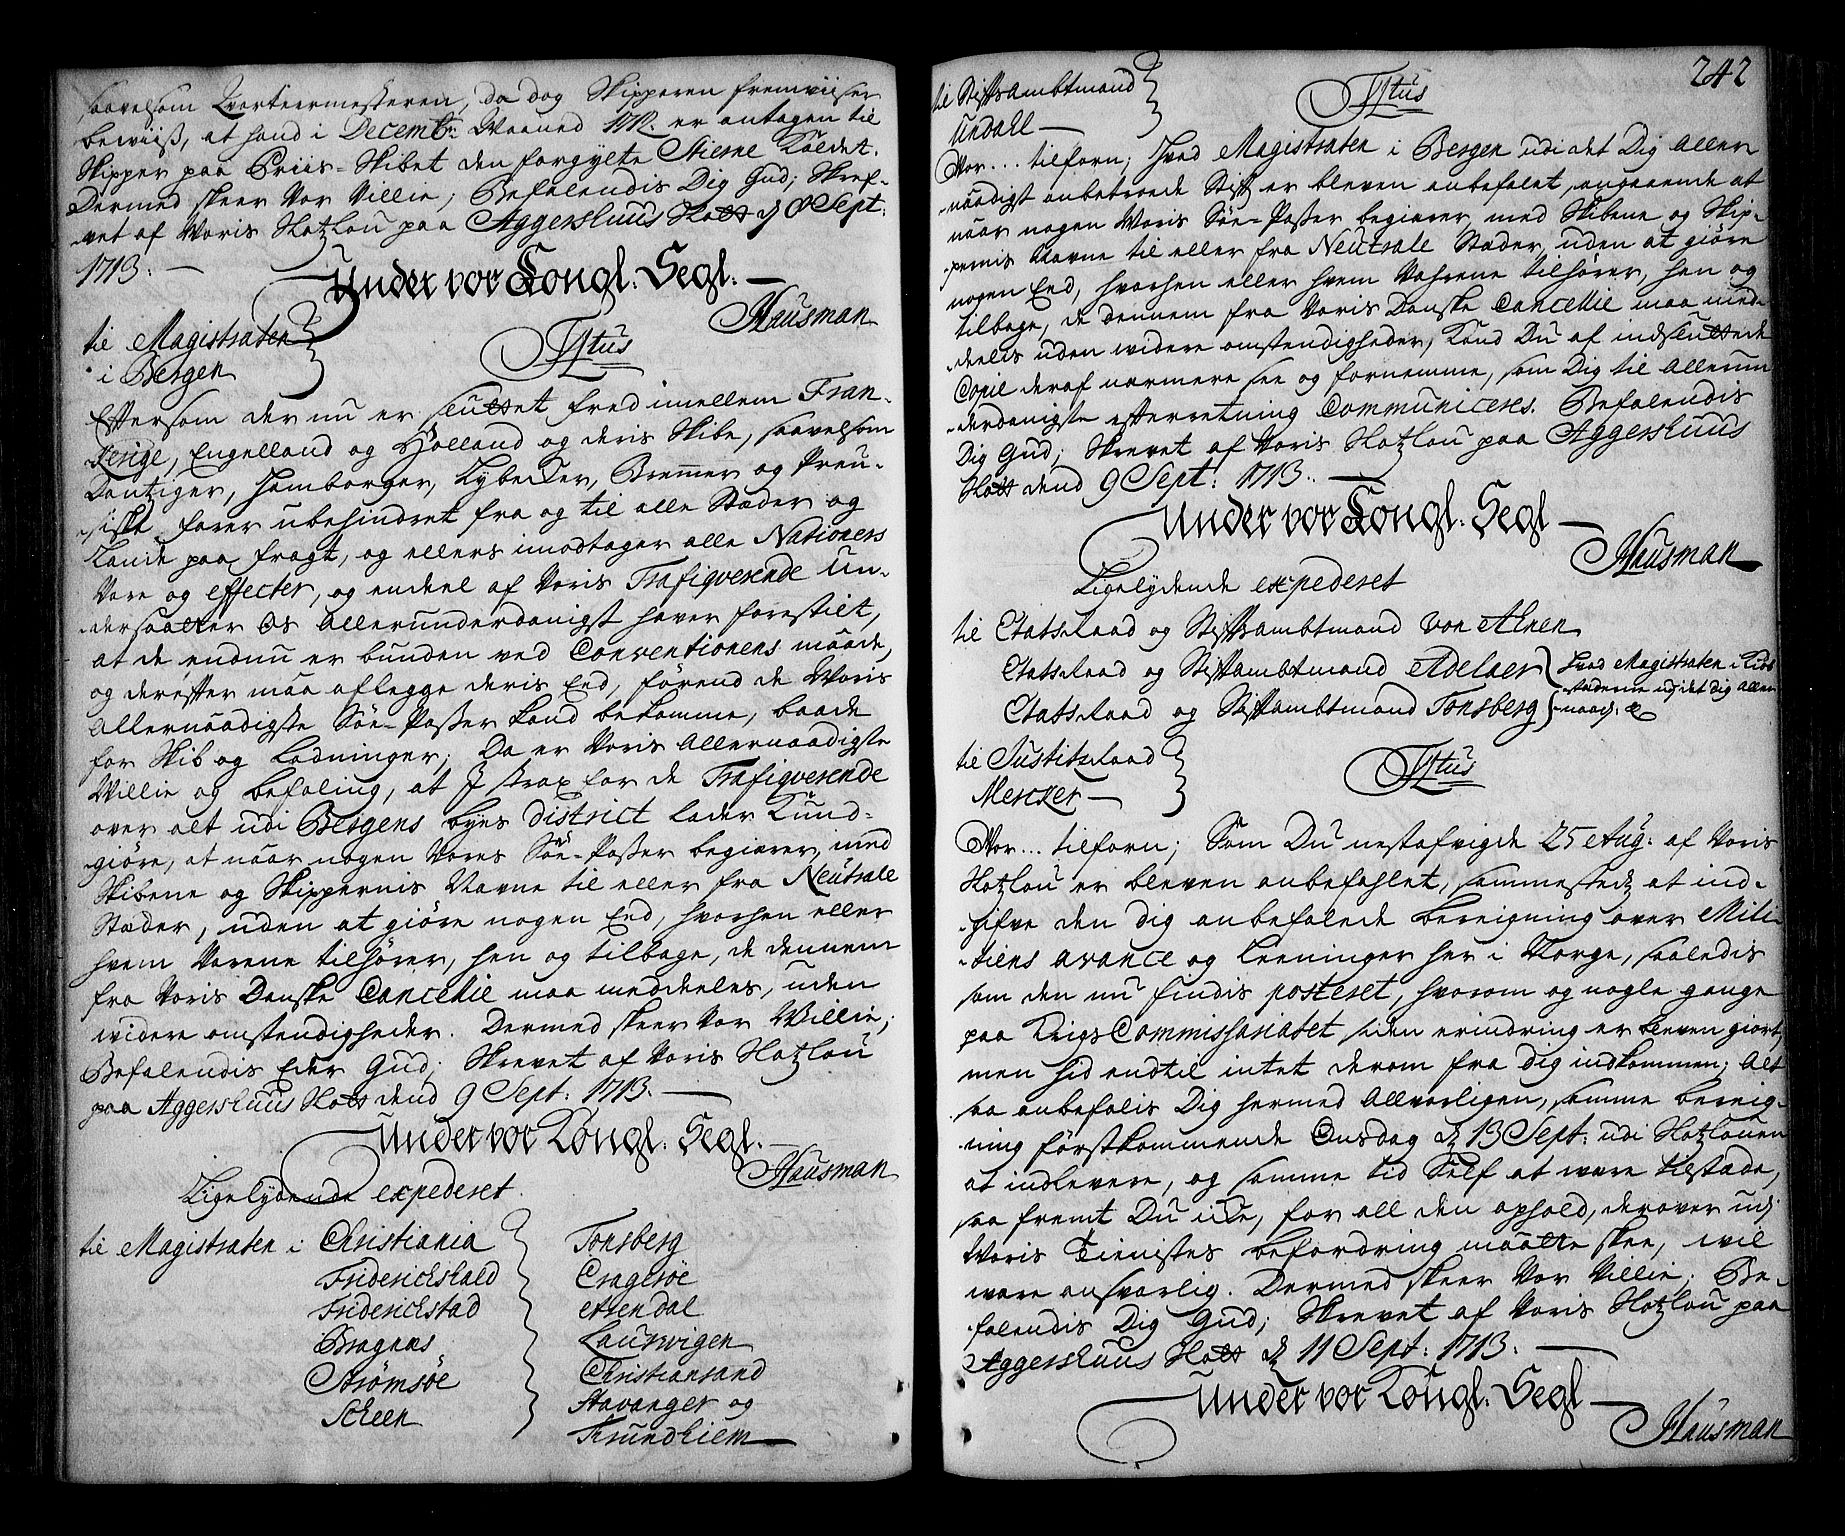 saavelsom Qvarteermesteren, da dog Skipperen fremviiser
beviiß, at hand i Decembr: Maaned 1712. er antagen til
Skipper paa Priis-Skibet den forgylte Stierne kaldet.
Dermed skeer Vor Villie; Befalendis Dig Gud; Skref-
vet af Voris Slotzlou paa Aggershuus Slott d 8 Sept:
1713. —
Under vor Kongl. Segl. —
Hausman
til Magistraten
i Bergen
Tytus
Eftersom der nu er sluttet fred imellem Fran-
kerige, Engelland og Holland og deris Skibe, saavelsom
Dantziger, Hamborger, Lybecker, Bremer og Preu-
-siske farer ubehindret fra og til alle Stæder og
Lande paa fragt, og ellers imodtager alle Nationers
Vare og effecter, og endeel af Voris Trafiqverende Un-
-dersaatter Os Allerunderdanigst haver forestilt,
at de endnu er bunden ved Conventionens maade,
og derefter maa aflegge deris Eed, førend de Voris
Allernaadigste Søe-Passer kand bekomme, baade
for Skib og Ladninger; Da er Voris Allernaadigste
Villie og befaling, at I strax for de Trafiqverende
over alt udi Bergens byes district lader kund-
-giøre, at naar nogen Vores Søe-Passer begiærer, med
Skibene og Skippernis Navne til eller fra Neutrale
Stæder, uden at giøre nogen Eed, hvorhen eller
hvem Varene tilhører, hen og tilbage, de dennem
fra Voris Danske Cancellie maa meddeeles, uden
widere omstendigheder. Dermed skeer Vor Willie;
Befalendis Eder Gud; Skrevet af Voris Slotzlou
paa Aggershuus Slott dend 9 Sept: 1713. —
Under vor Kongl. Segl. —
Hausman
Ligelydende expederet.
til Magistraten i Christiania
Friderichshald
Friderichstad
Bragnæs
Strømsøe
Scheen
Tonsberg
Cragerøe
Arendal
Laurwigen
Christiansand
Stavanger og
Trundhiem —
242
til Stiftsambtmand
Undall —
Tytus
Vor... tilforn; Hvad Magistraten i Bergen udi det Dig Aller-
-naadigst anbetroede Stift er bleven anbefalet, angaaende at
naar nogen Voris Søe-Passer begiærer, med Skibene og Skip-
-pernis Navne til eller fra Neutrale Stæder, uden at giøre
nogen Eed, hvorhen eller hvem Vahrene tilhører, hen og
tilbage, de dennem fra Voris Danske Cancellie maa med-
deelis uden widere omstendigheder, kand Du af indsluttede
Copie deraf nærmere see og fornemme, som Dig til Allerun-
-derdanigste efterretning Communiceres. Befalendis
Dig Gud; Skrevet af Voris Slotzlou paa Aggershuus
Slott dend 9 Sept: 1713. —
Under vor Kongl. Segl —
Hausman
Ligelydende expederet
til Etatsraad og Stiftsambtmand Von Ahnen
Etatsraad og Stiftsambtmand Adelaer
Etatsraad og Stiftsambtmand Tonsberg
hvad Magistraten i Kiøb-
stæderne udi det dig Aller-
-naad: &
til Justitzraad
Mercker —
Tytus
Vor... tilforn; Som Du nestafvigte 25 Aug: af Voris
Slotzlou er bleven anbefahlet, sammestedz at ind-
-gifve den dig anbefalede bereigning over Mili-
-tiens avance og leeninger her i Norge, saaledis
som den nu findis posteret, hvorom og nogle gange
paa KrigsCommissariatet siden erindring er bleven giort,
men hid endtil intet derom fra dig indkommen; Alt
saa anbefalis Dig hermed Allvorligen, samme bereig-
ning førstkommende Onsdag d 13 Sept: udi Slotzlouen
at indlevere, og samme tid Self at være tilstæde,
saa fremt Du icke, for all den ophold, derover udj
Voris Tienistes befordring maatte skee, wil
være ansvarlig. Dermed skeer Vor Villie; Be-
-falendis Dig Gud; Skrevet af Voris Slotzlou paa
Aggershuus Slott d 11 Sept: 1713. —
Under vor Kongl. Segl —
Hausman